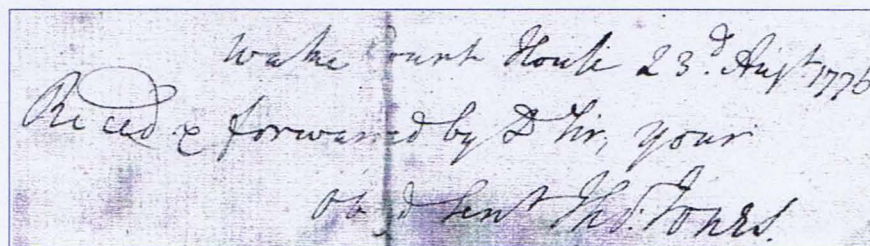 Wake Court House 23.d Augt. 1776
Recied & forwarred by Dr Sir, your
Obed Sert Thos. Jones